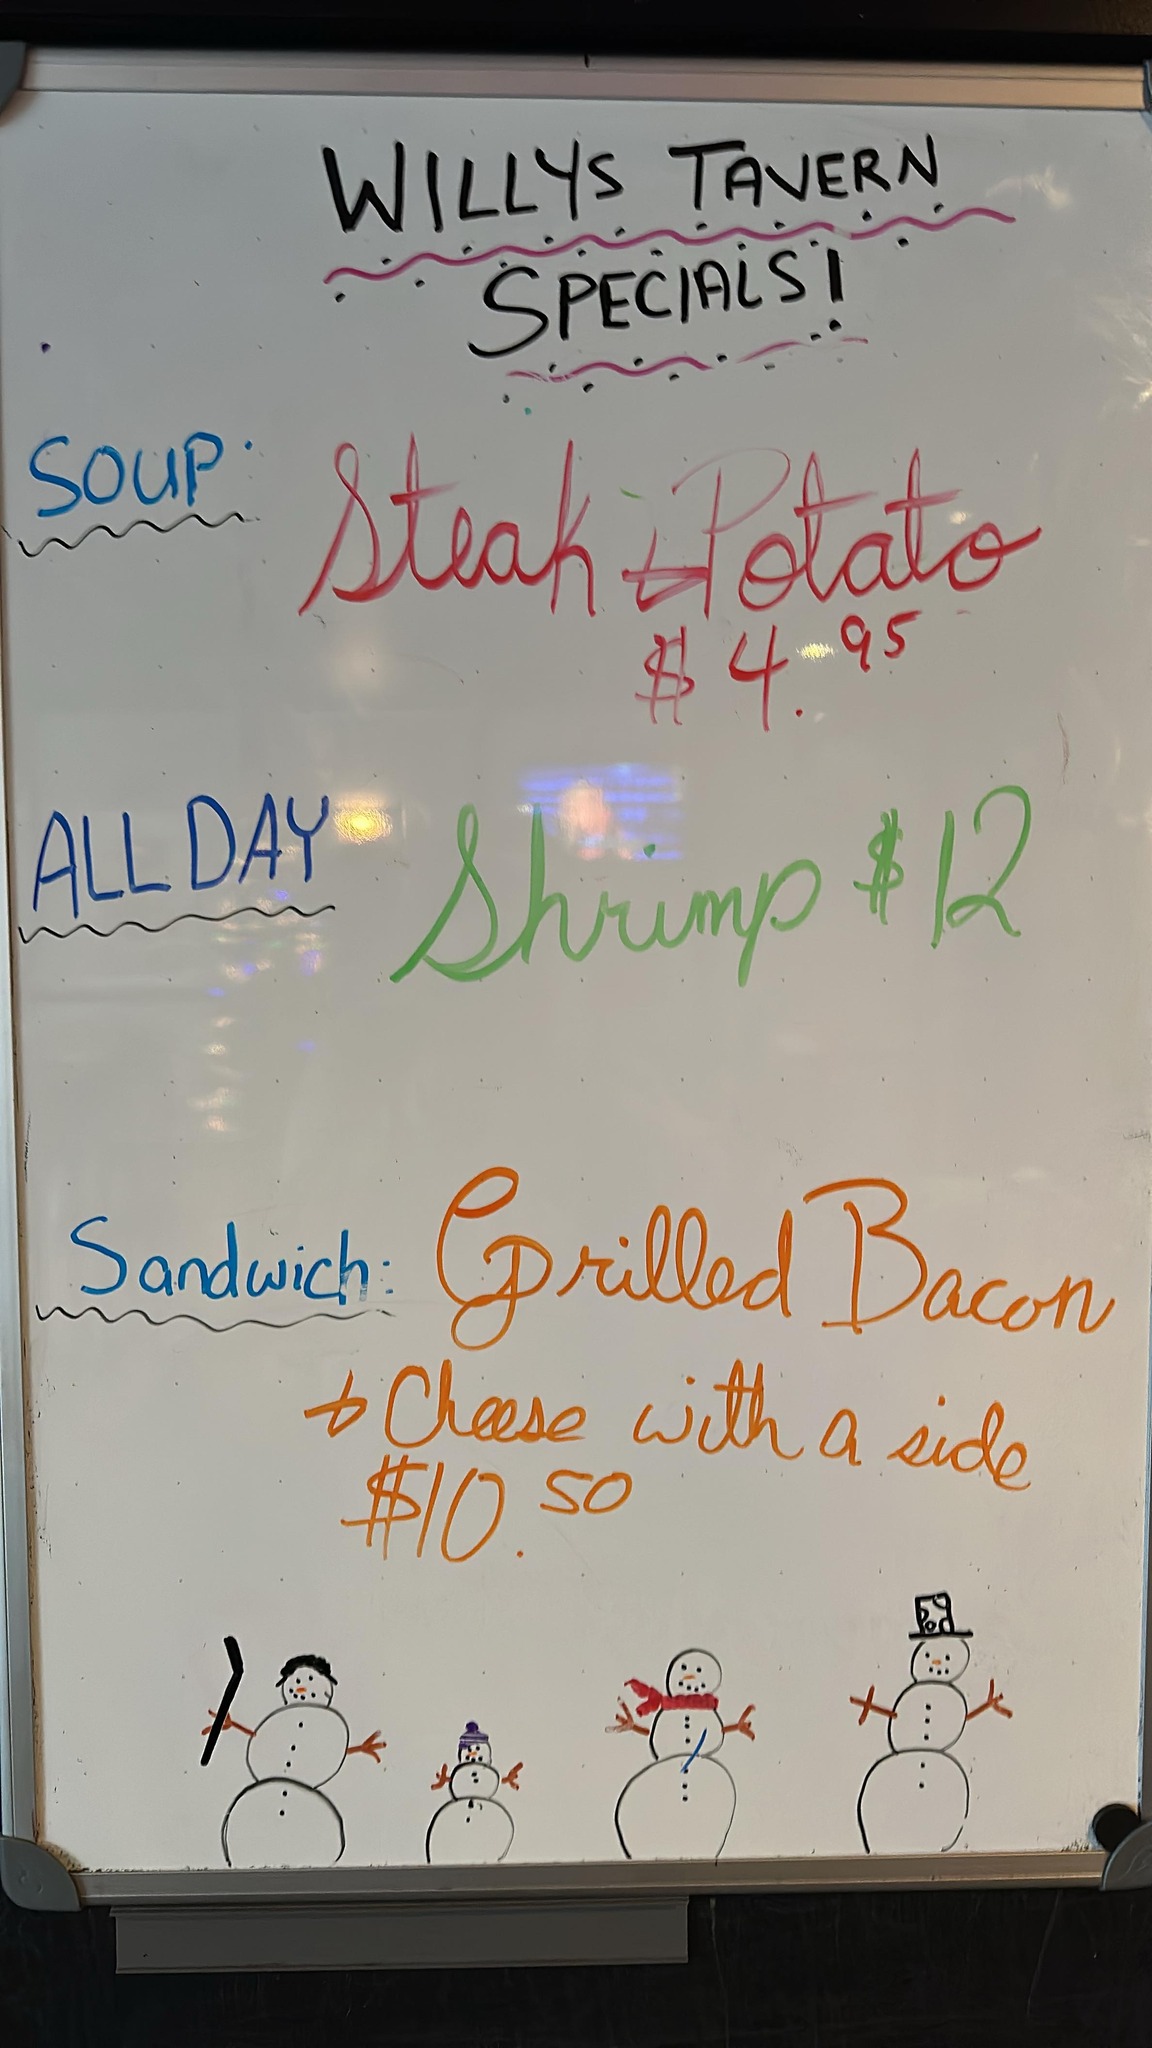 WILLYS TAVERN
SPECIALS!
SOUP: Steak & Potato
$4.95
ALL DAY Shrimp $12
Sandwich: Grilled Bacon
& Cheese with a side
$10.50